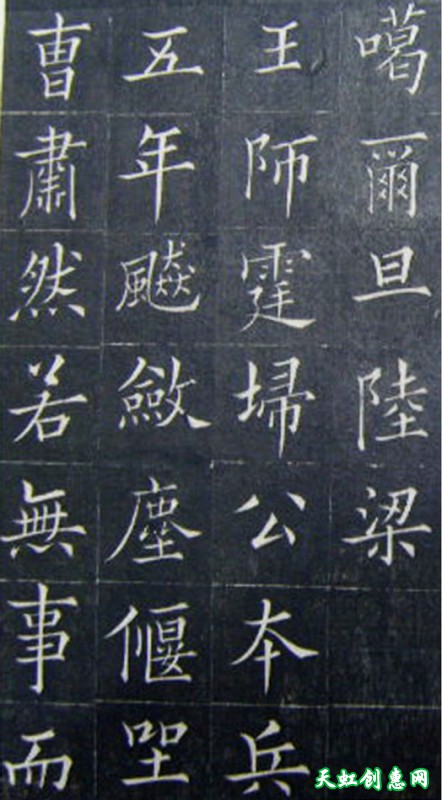 噶爾旦陸梁
王師霆埽公本兵
五年飇斂塵偃坐
曹肅然若無事而
天虹创意网